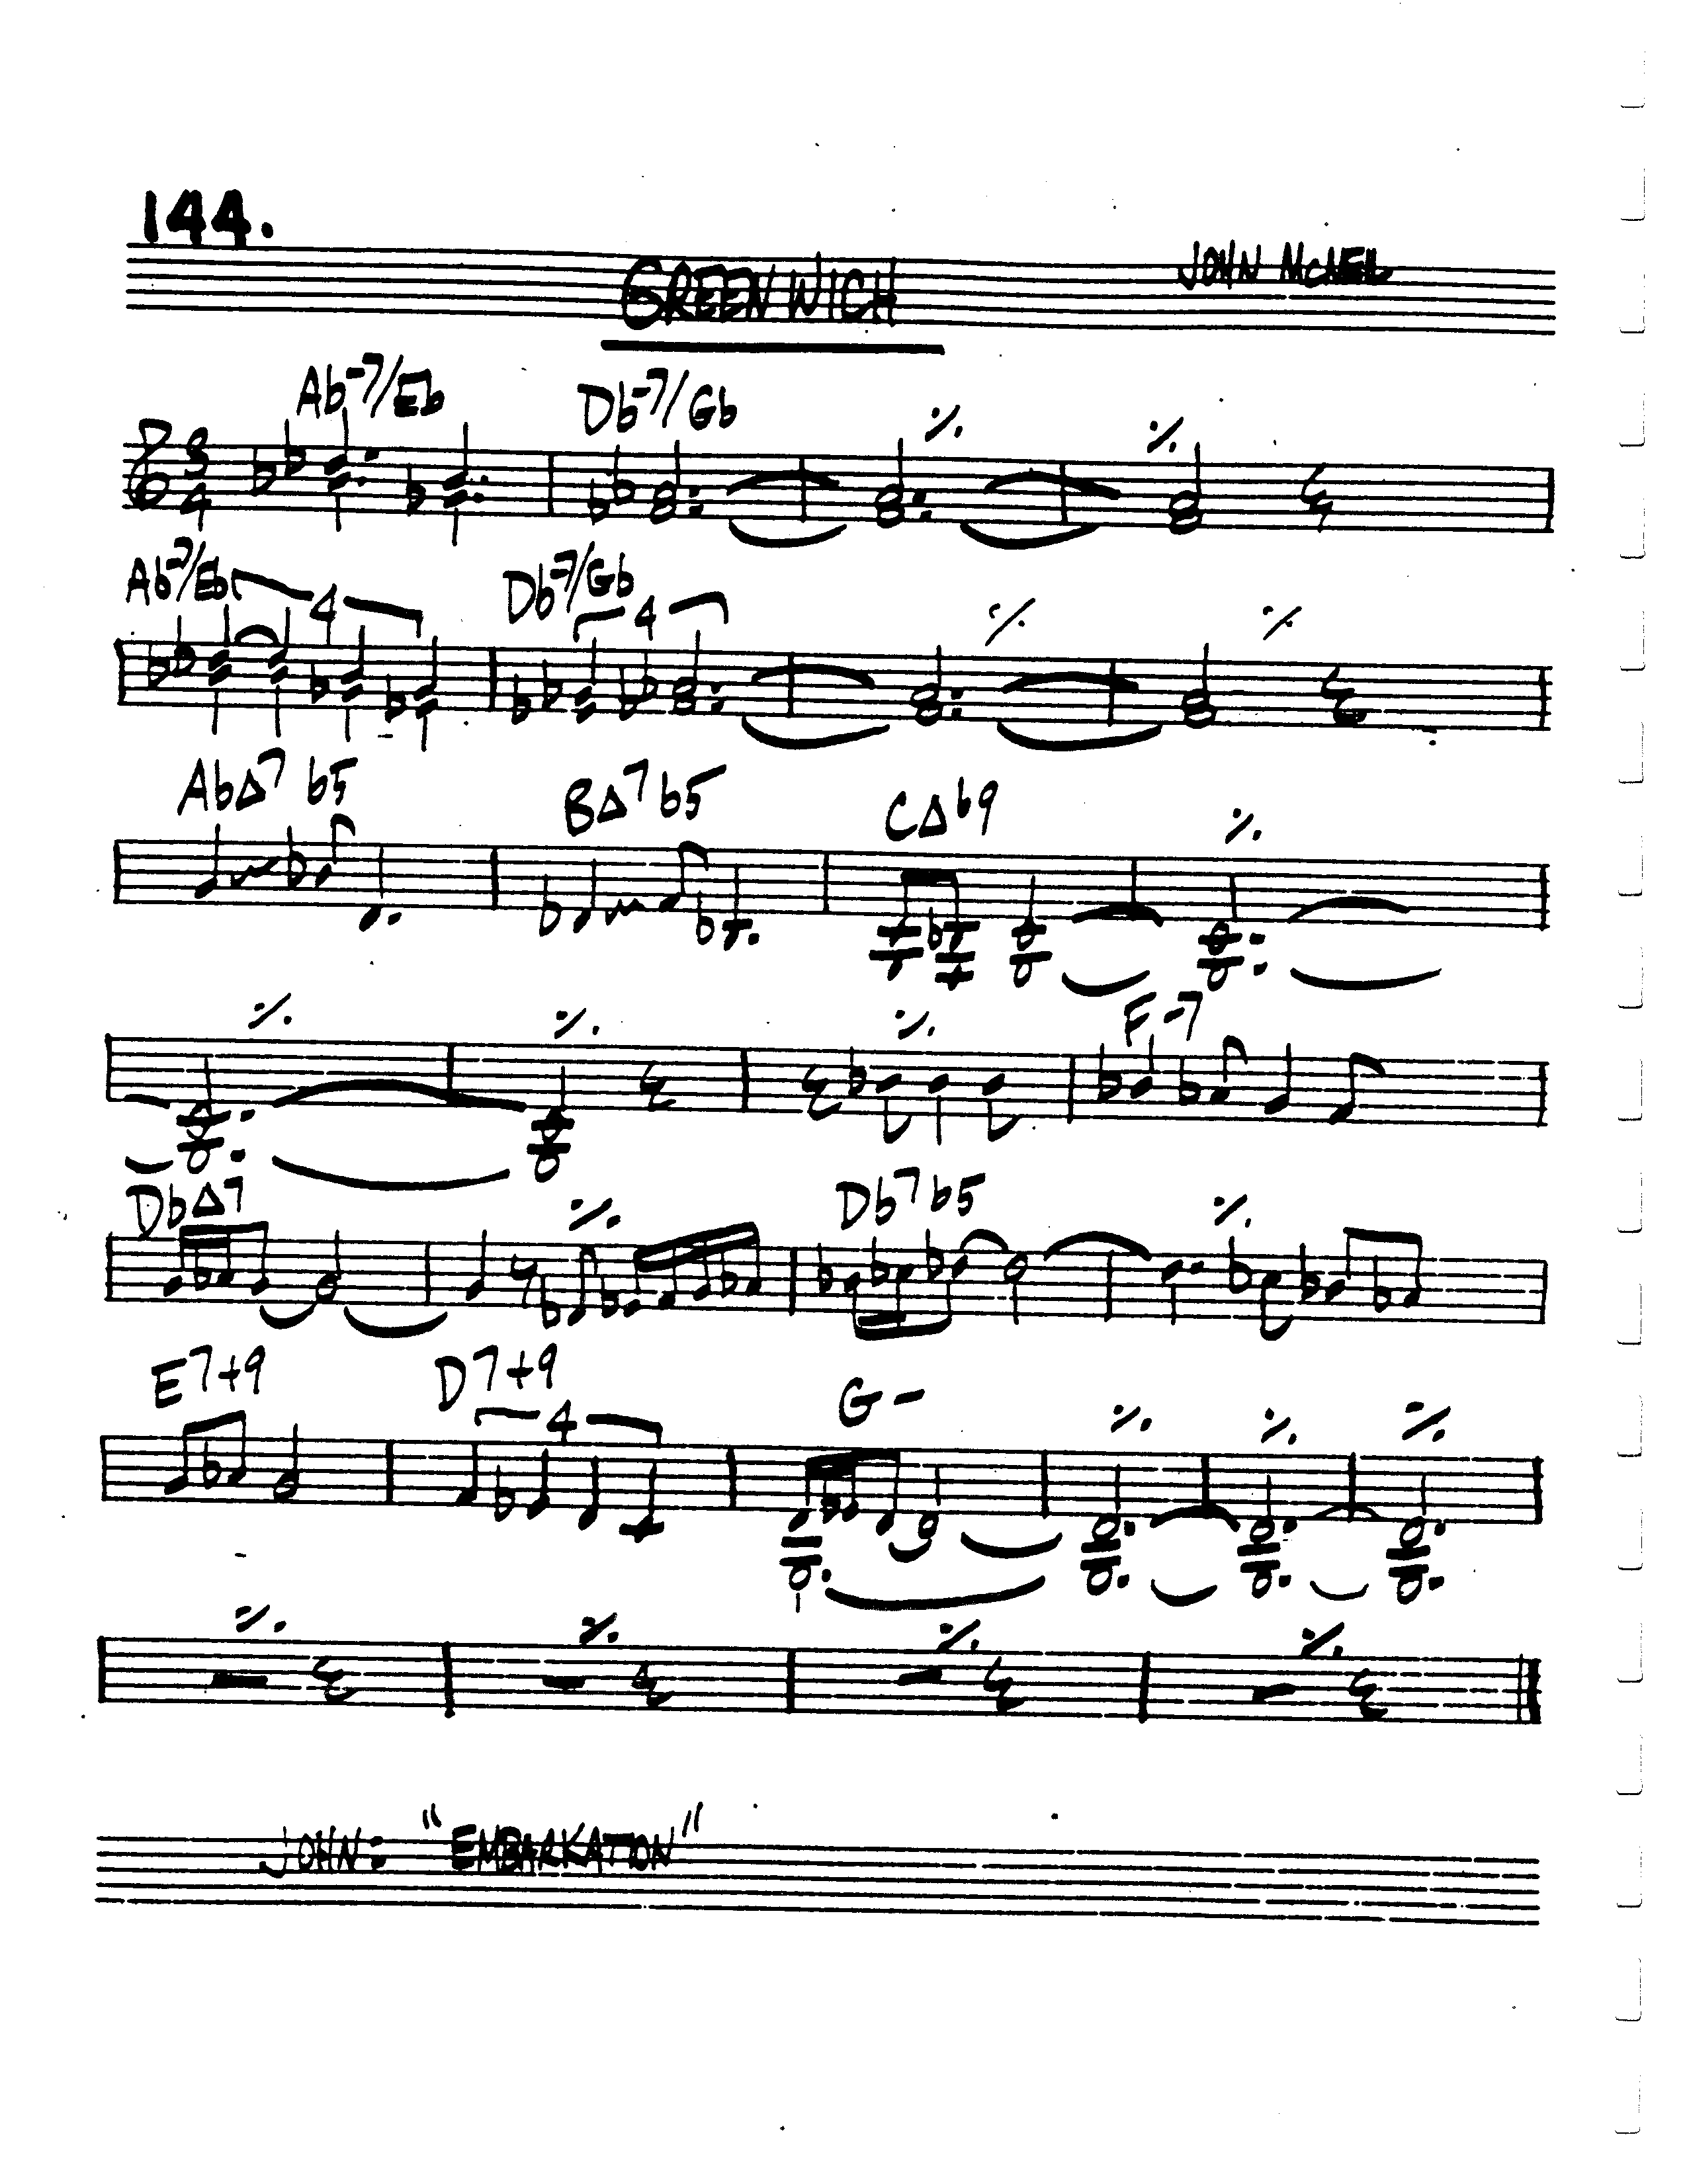 144.
GREENWICH
JOHN McNEIL
Ab-7/Eb Db-7/Gb ٪ ٪
3
4
Ab-7/Eb 4 Db-7/Gb 4 ٪ ٪
AbΔ7 b5 BΔ7 b5 CΔb9 ٪
٪ ٪ ٪ F-7
DbΔ7 ٪ Db7 b5 ٪
E7+9 D7+9 G- ٪ ٪ ٪
4
٪ ٪ ٪ ٪
JOHN: "EMBARKATION"